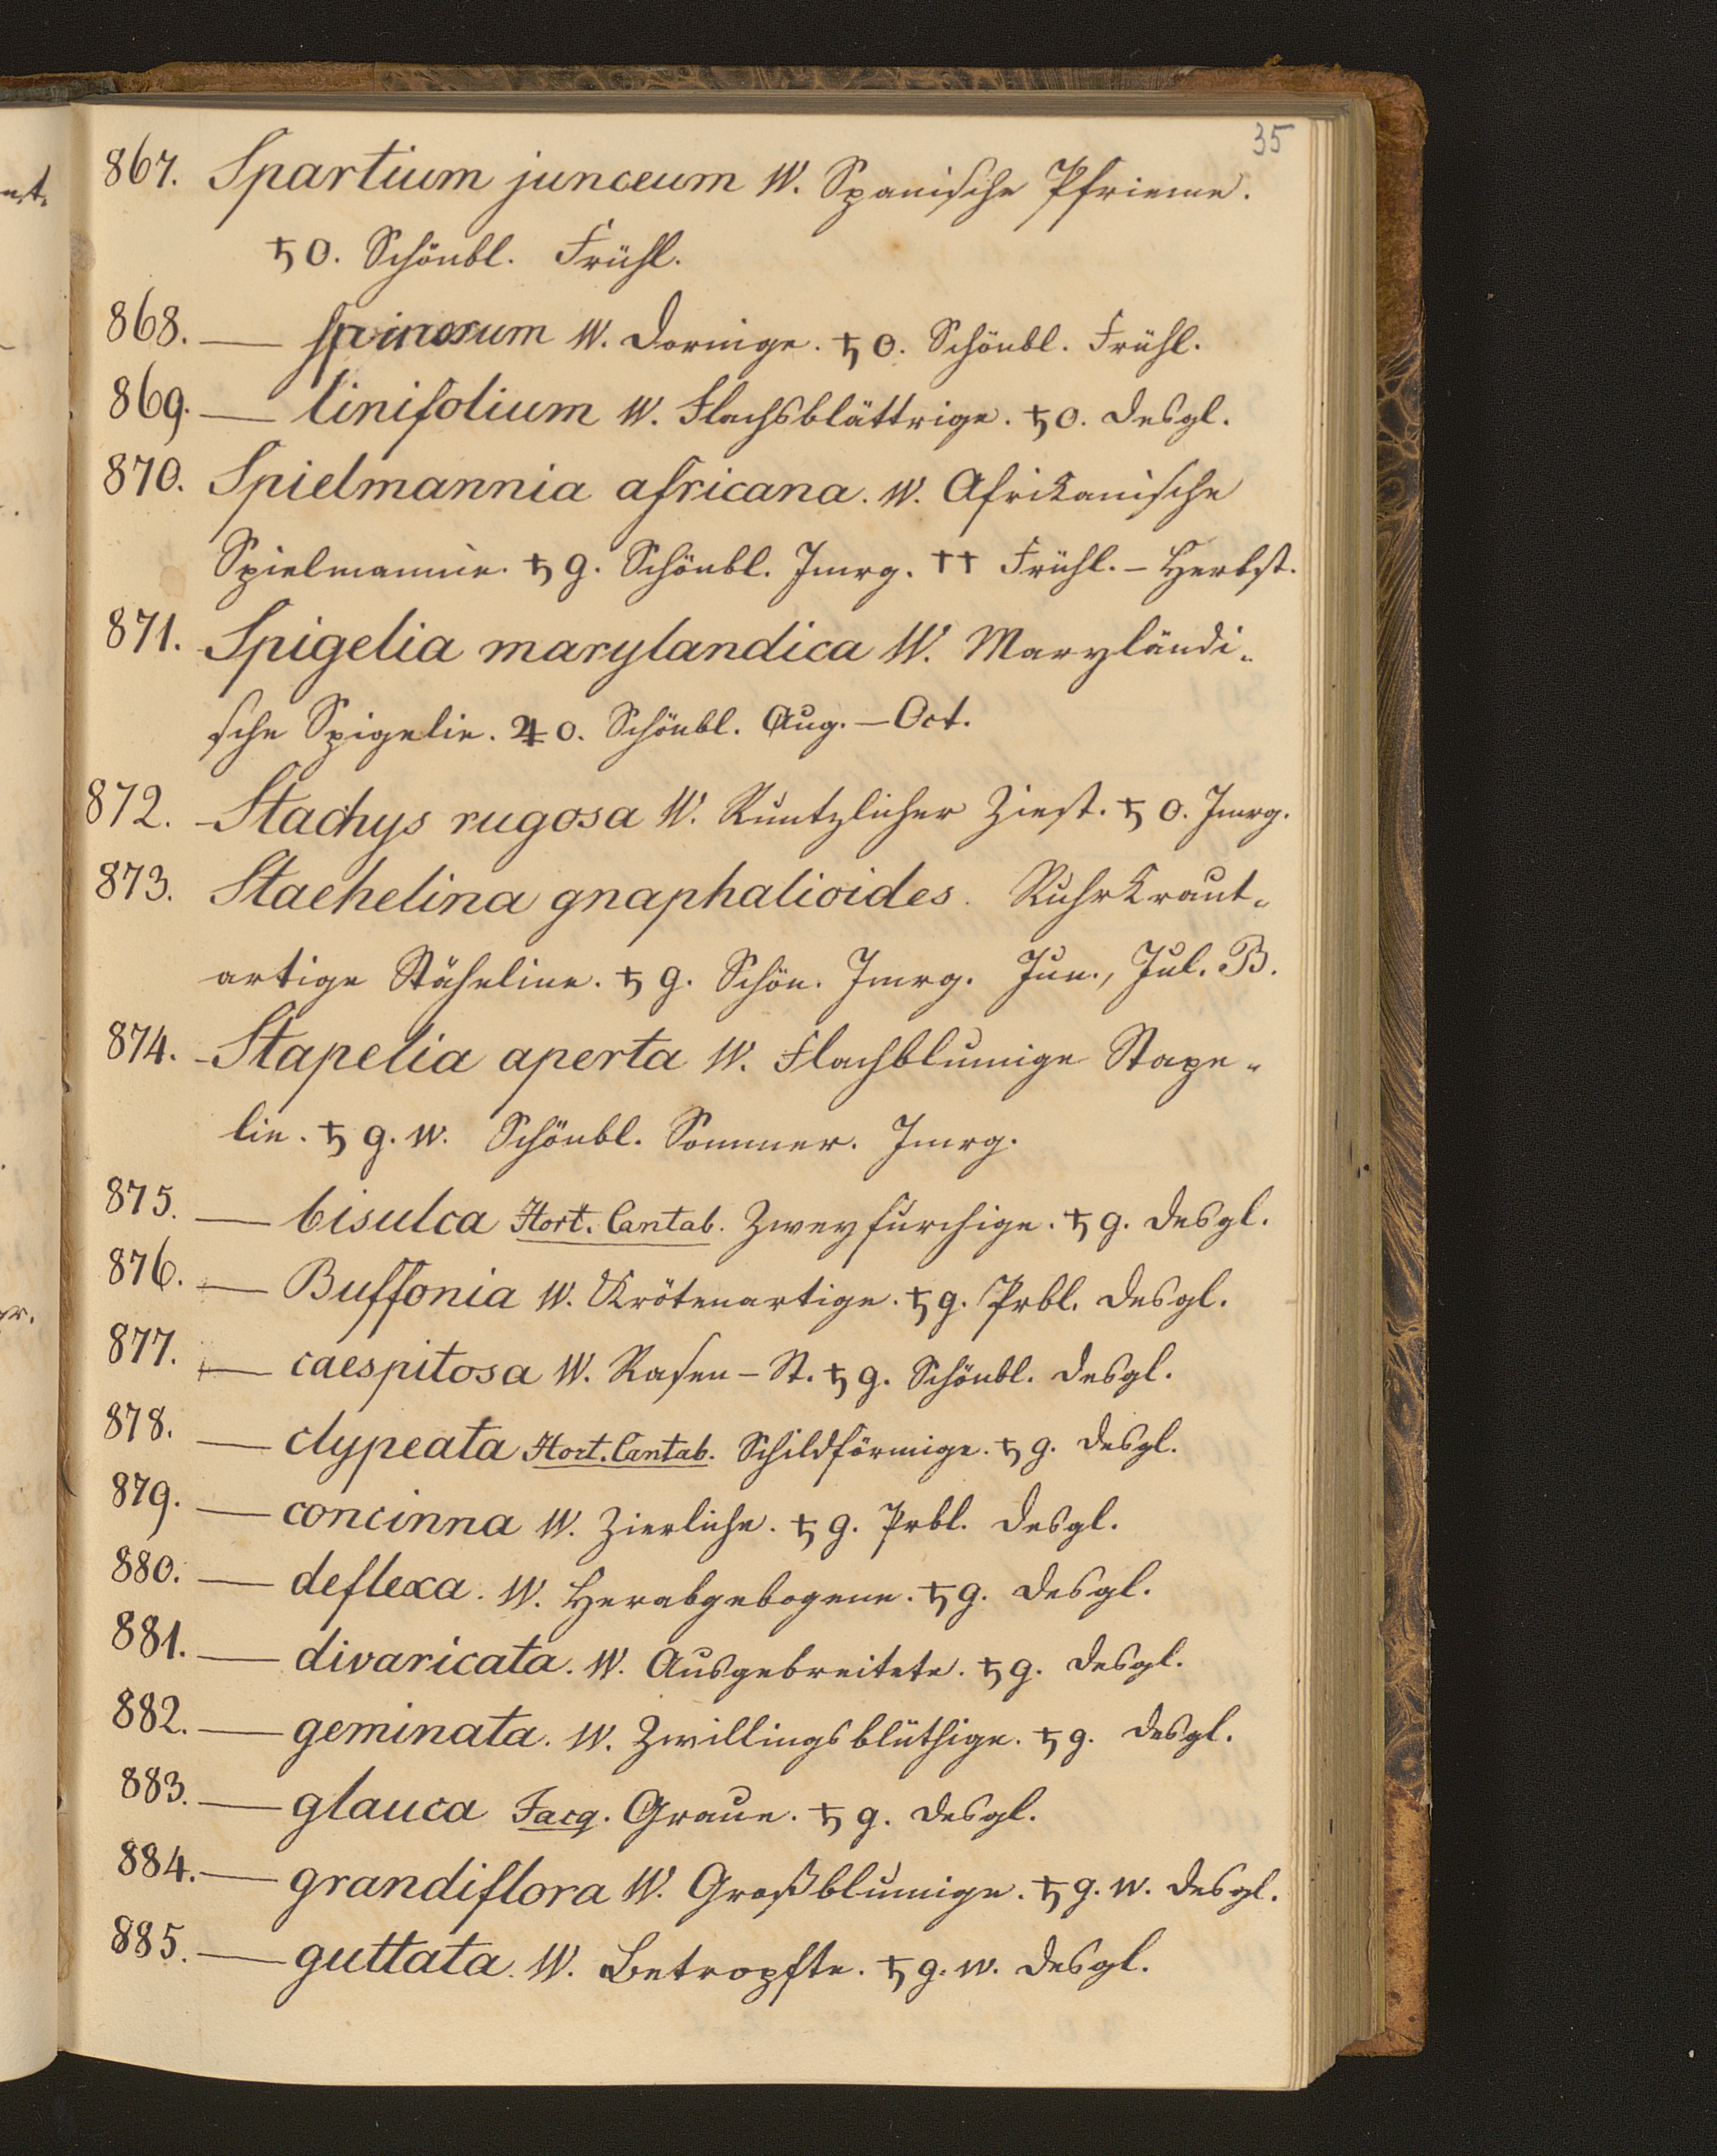 35
867. Spartium junceum W. Spanische Pfrieme.
♄ O. Schönbl. Frühl.
868. — spinosum W. Dornige. ♄ O. Schönbl. Frühl.
869. — linifolium W. Flachsblättrige. ♄ O. Desgl.
870. Spielmannia africana. W. Afrikanische
Spielmannie. ♄ g. Schönbl. Jmrg. †† Frühl. – Herbst.
871. Spigelia marylandica W. Maryländi-
sche Spigelie. ♃ O. Schönbl. Aug. – Oct.
872. Stachys rugosa W. Runtzlicher Ziest. ♄ O. Jmrg.
873. Staehelina gnaphalioides. Ruhrkraut-
artige Stäheline. ♄ g. Schön. Jmrg. Jun., Jul. B.
874. Stapelia aperta W. Flachblumige Stape-
lie. ♄ g. w. Schönbl. Sommer. Jmrg.
875. — bisulca Hort. Cantab. Zweyfurchige. ♄ g. Desgl.
876. — Buffonia W. Krötenartige. ♄ g. Prbl. Desgl.
877. — caespitosa W. Rasen-St. ♄ g. Schönbl. Desgl.
878. — clypeata Hort. Cantab. Schildförmige. ♄ g. Desgl.
879. — concinna W. Zierliche. ♄ g. Prbl. Desgl.
880. — deflexa. W. Herabgebogene. ♄ g. Desgl.
881. — divaricata. W. Ausgebreitete. ♄ g. Desgl.
882. — geminata. W. Zwillingsblüthige. ♄ g. Desgl.
883. — glauca Jacq. Graue. ♄ g. Desgl.
884. — grandiflora W. Großblumige. ♄ g. w. Desgl.
885. — guttata. W. Betropfte. ♄ g. w. Desgl.